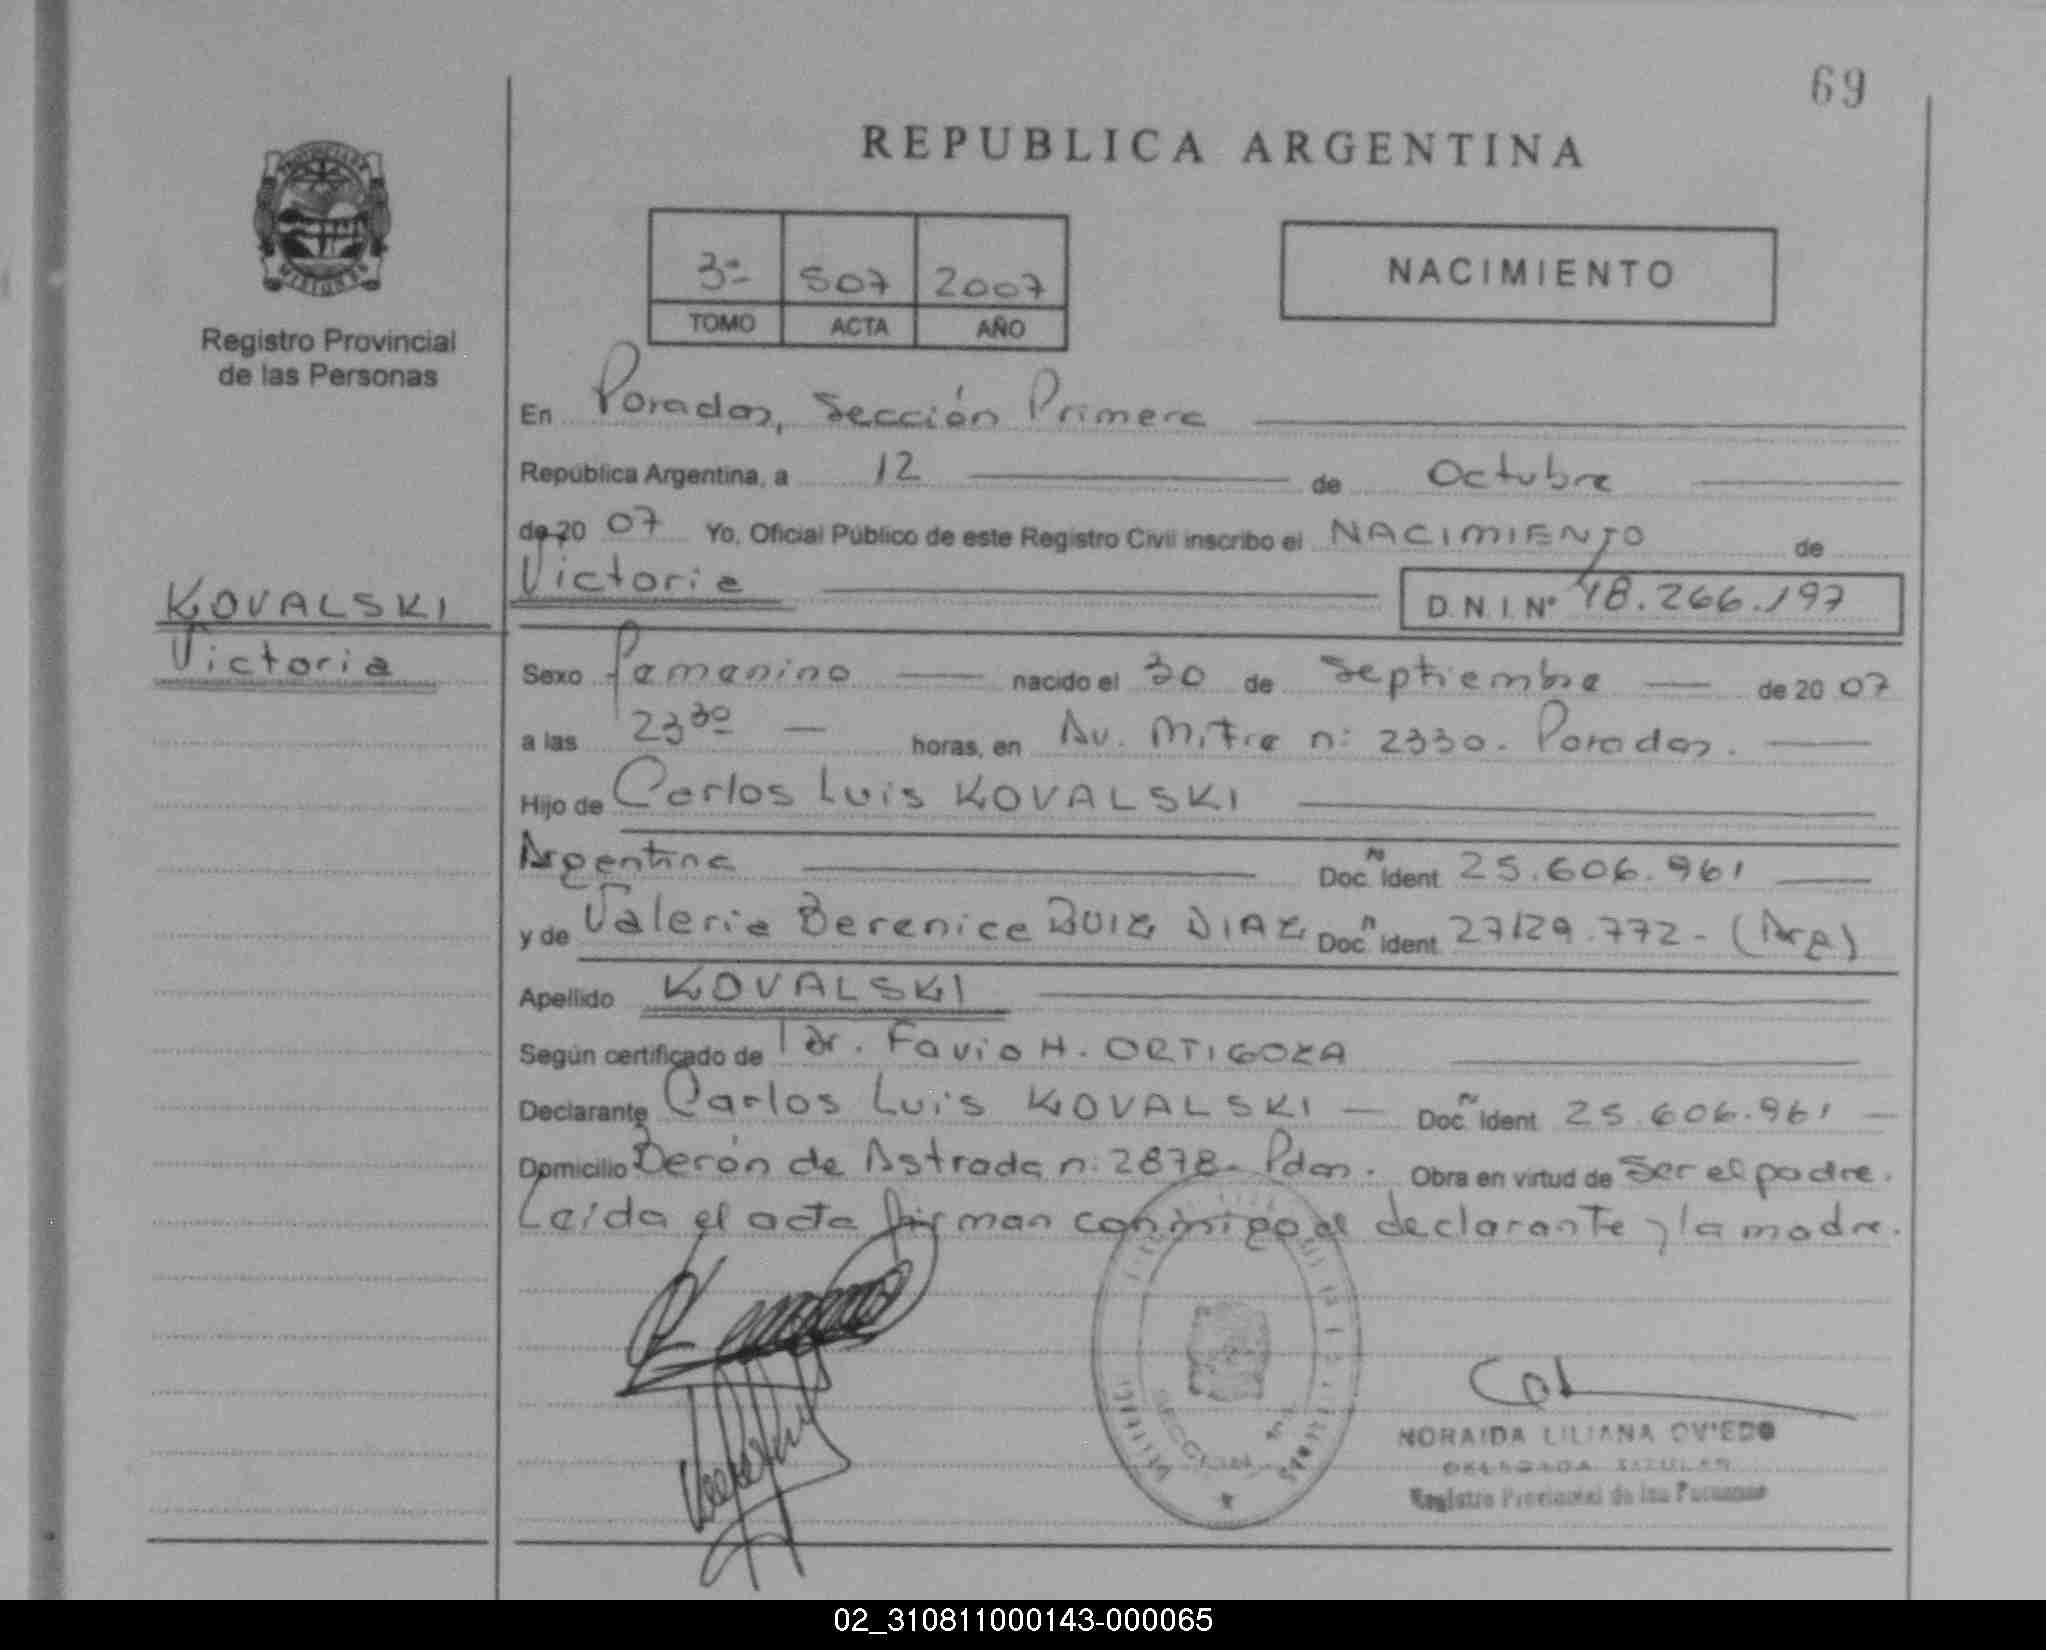 69
REPUBLICA ARGENTINA
3º 507 2007
TOMO ACTA AÑO
NACIMIENTO
MISIONES
Registro Provincial
de las Personas
En Posadas, Sección Primera
República Argentina, a 12 de Octubre
de 20 07 Yo, Oficial Público de este Registro Civil inscribo el NACIMIENTO de
Victoria D.N.I. Nº 48.266.197
KOVALSKI
Victoria
Sexo femenino nacido el 30 de Septiembre de 20 07
a las 23 30 horas, en Av. Mitre n: 2330. Posadas.
Hijo de Carlos Luis KOVALSKI
Argentina Doc. Ident 25.606.961
y de Valeria Berenice RUIZ DIAZ Doc. Ident. 27129.772- (Arg)
Apellido KOVALSKI
Según certificado de Dr. Favio H. ORTIGOZA
Declarante Carlos Luis KOVALSKI Doc. Ident 25.606.961
Domicilio Berón de Astrada n: 2878- Pdas. Obra en virtud de Ser el padre.
Leída el acta firman conmigo el declarante y la madre.
NORAIDA LILIANA OVIEDO
DELEGADA TITULAR
Registro Provincial de las Personas
02_310811000143-000065